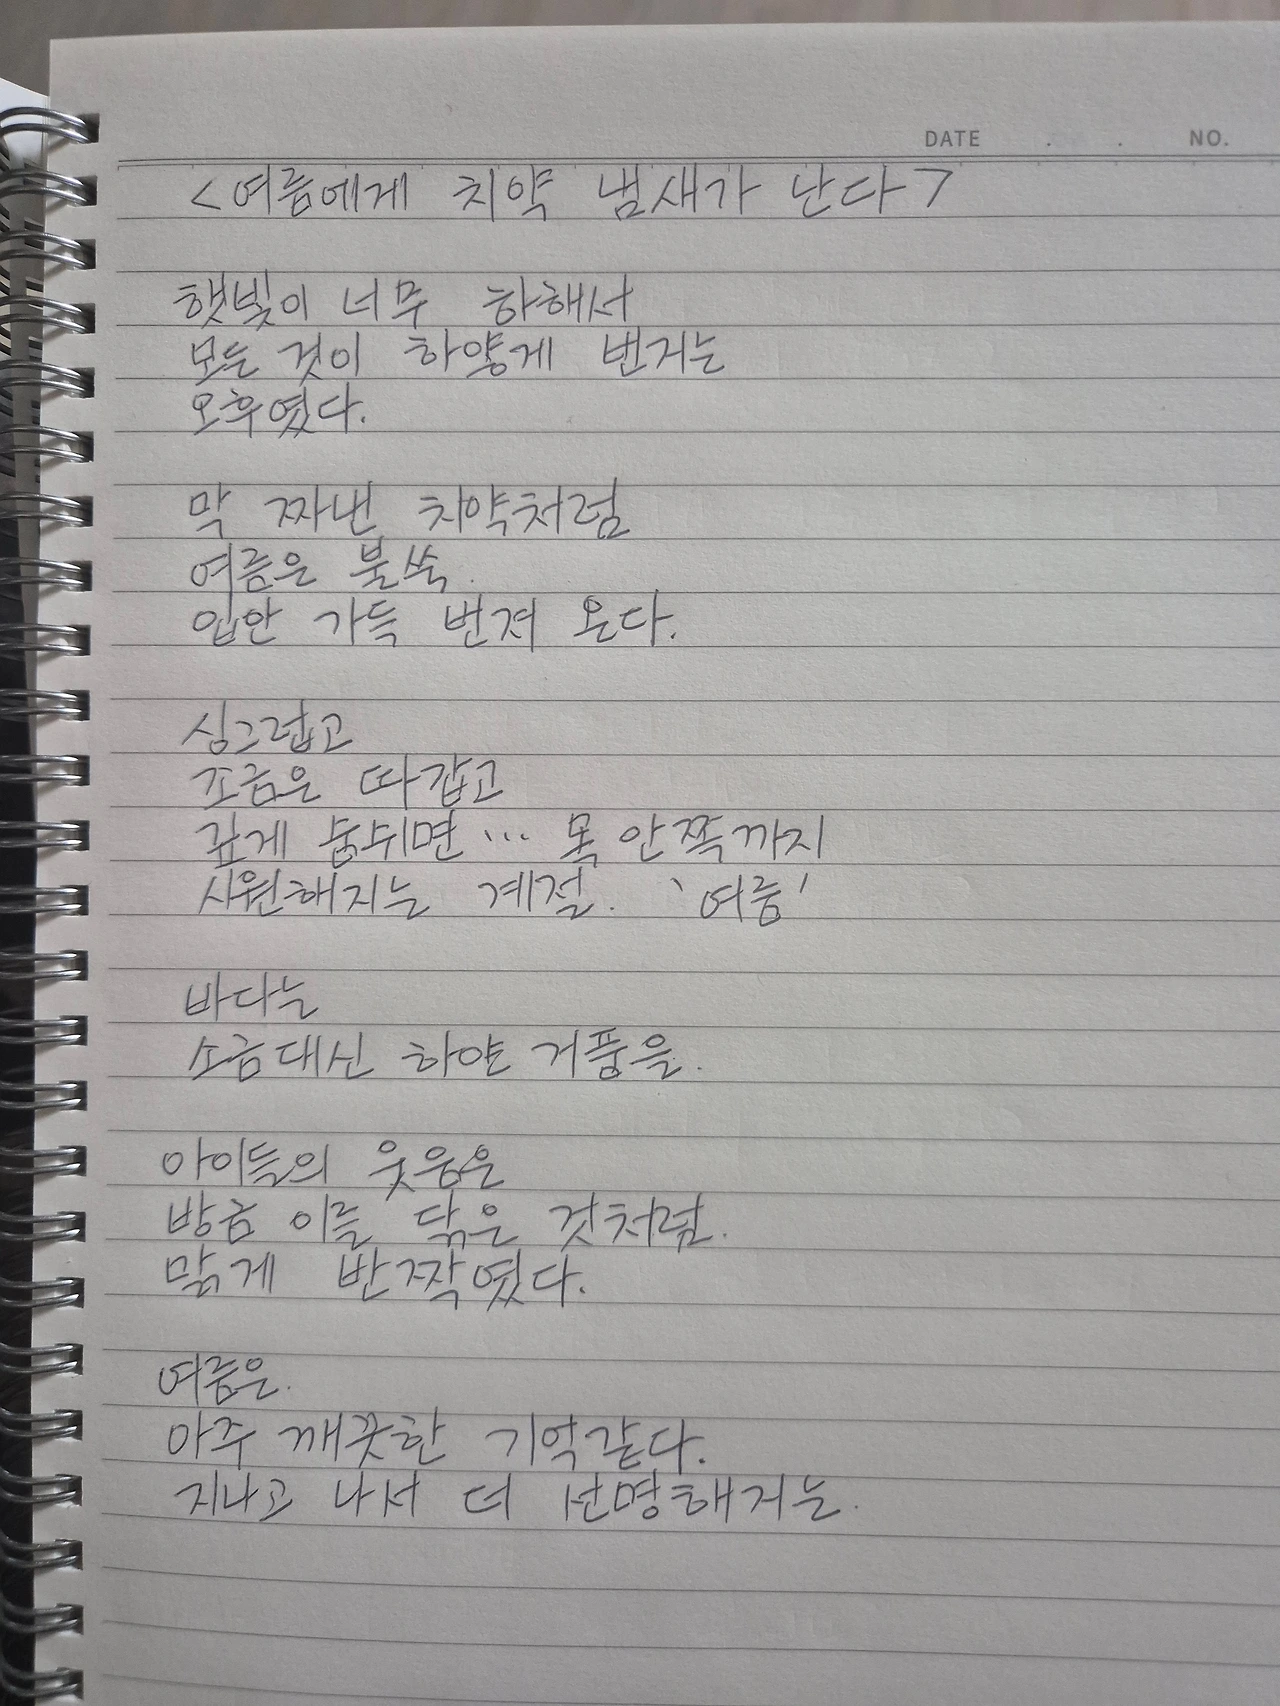 DATE . . NO.
<여름에게 치약 냄새가 난다>
햇빛이 너무 하해서
모든 것이 하얗게 번지는
오후였다.
막 짜낸 치약처럼
여름은 불쑥
입안 가득 번져 온다.
싱그럽고
조금은 따갑고
깊게 숨쉬면... 목 안쪽까지
시원해지는 계절. '여름'
바다는
소금대신 하얀 거품을.
아이들의 웃음은
방금 이를 닦은 것처럼.
맑게 반짝였다.
여름은.
아주 깨끗한 기억같다.
지나고 나서 더 선명해지는.